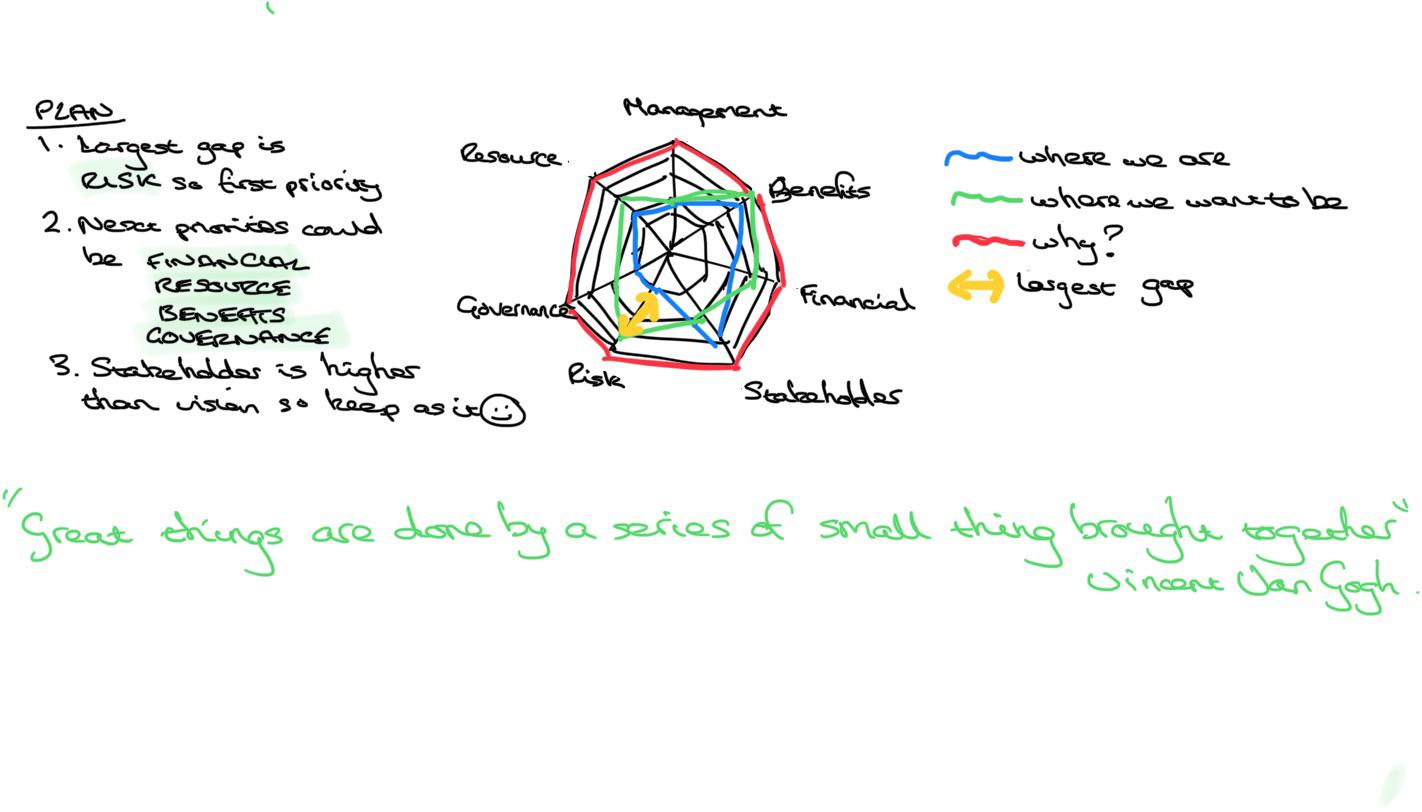 PLAN
1. Largest gap is
RISK so first priority
2. Next priorites could
be FINANCIAL
RESOURCE
BENEFITS
GOVERNANCE
3. Stakeholder is higher
than vision so keep as is
Management
Resource
Benefits
Financial
Governance
Risk
Stakeholder
where we are
where we want to be
why?
largest gap
"Great things are done by a series of small thing brought together"
Vincent Van Gogh.